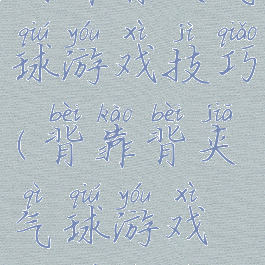 qiú yóu xì jì qiǎo
球游戏技巧
bèi kào bèi jiā
(背靠背夹
qì qiú yóu xì
气球游戏